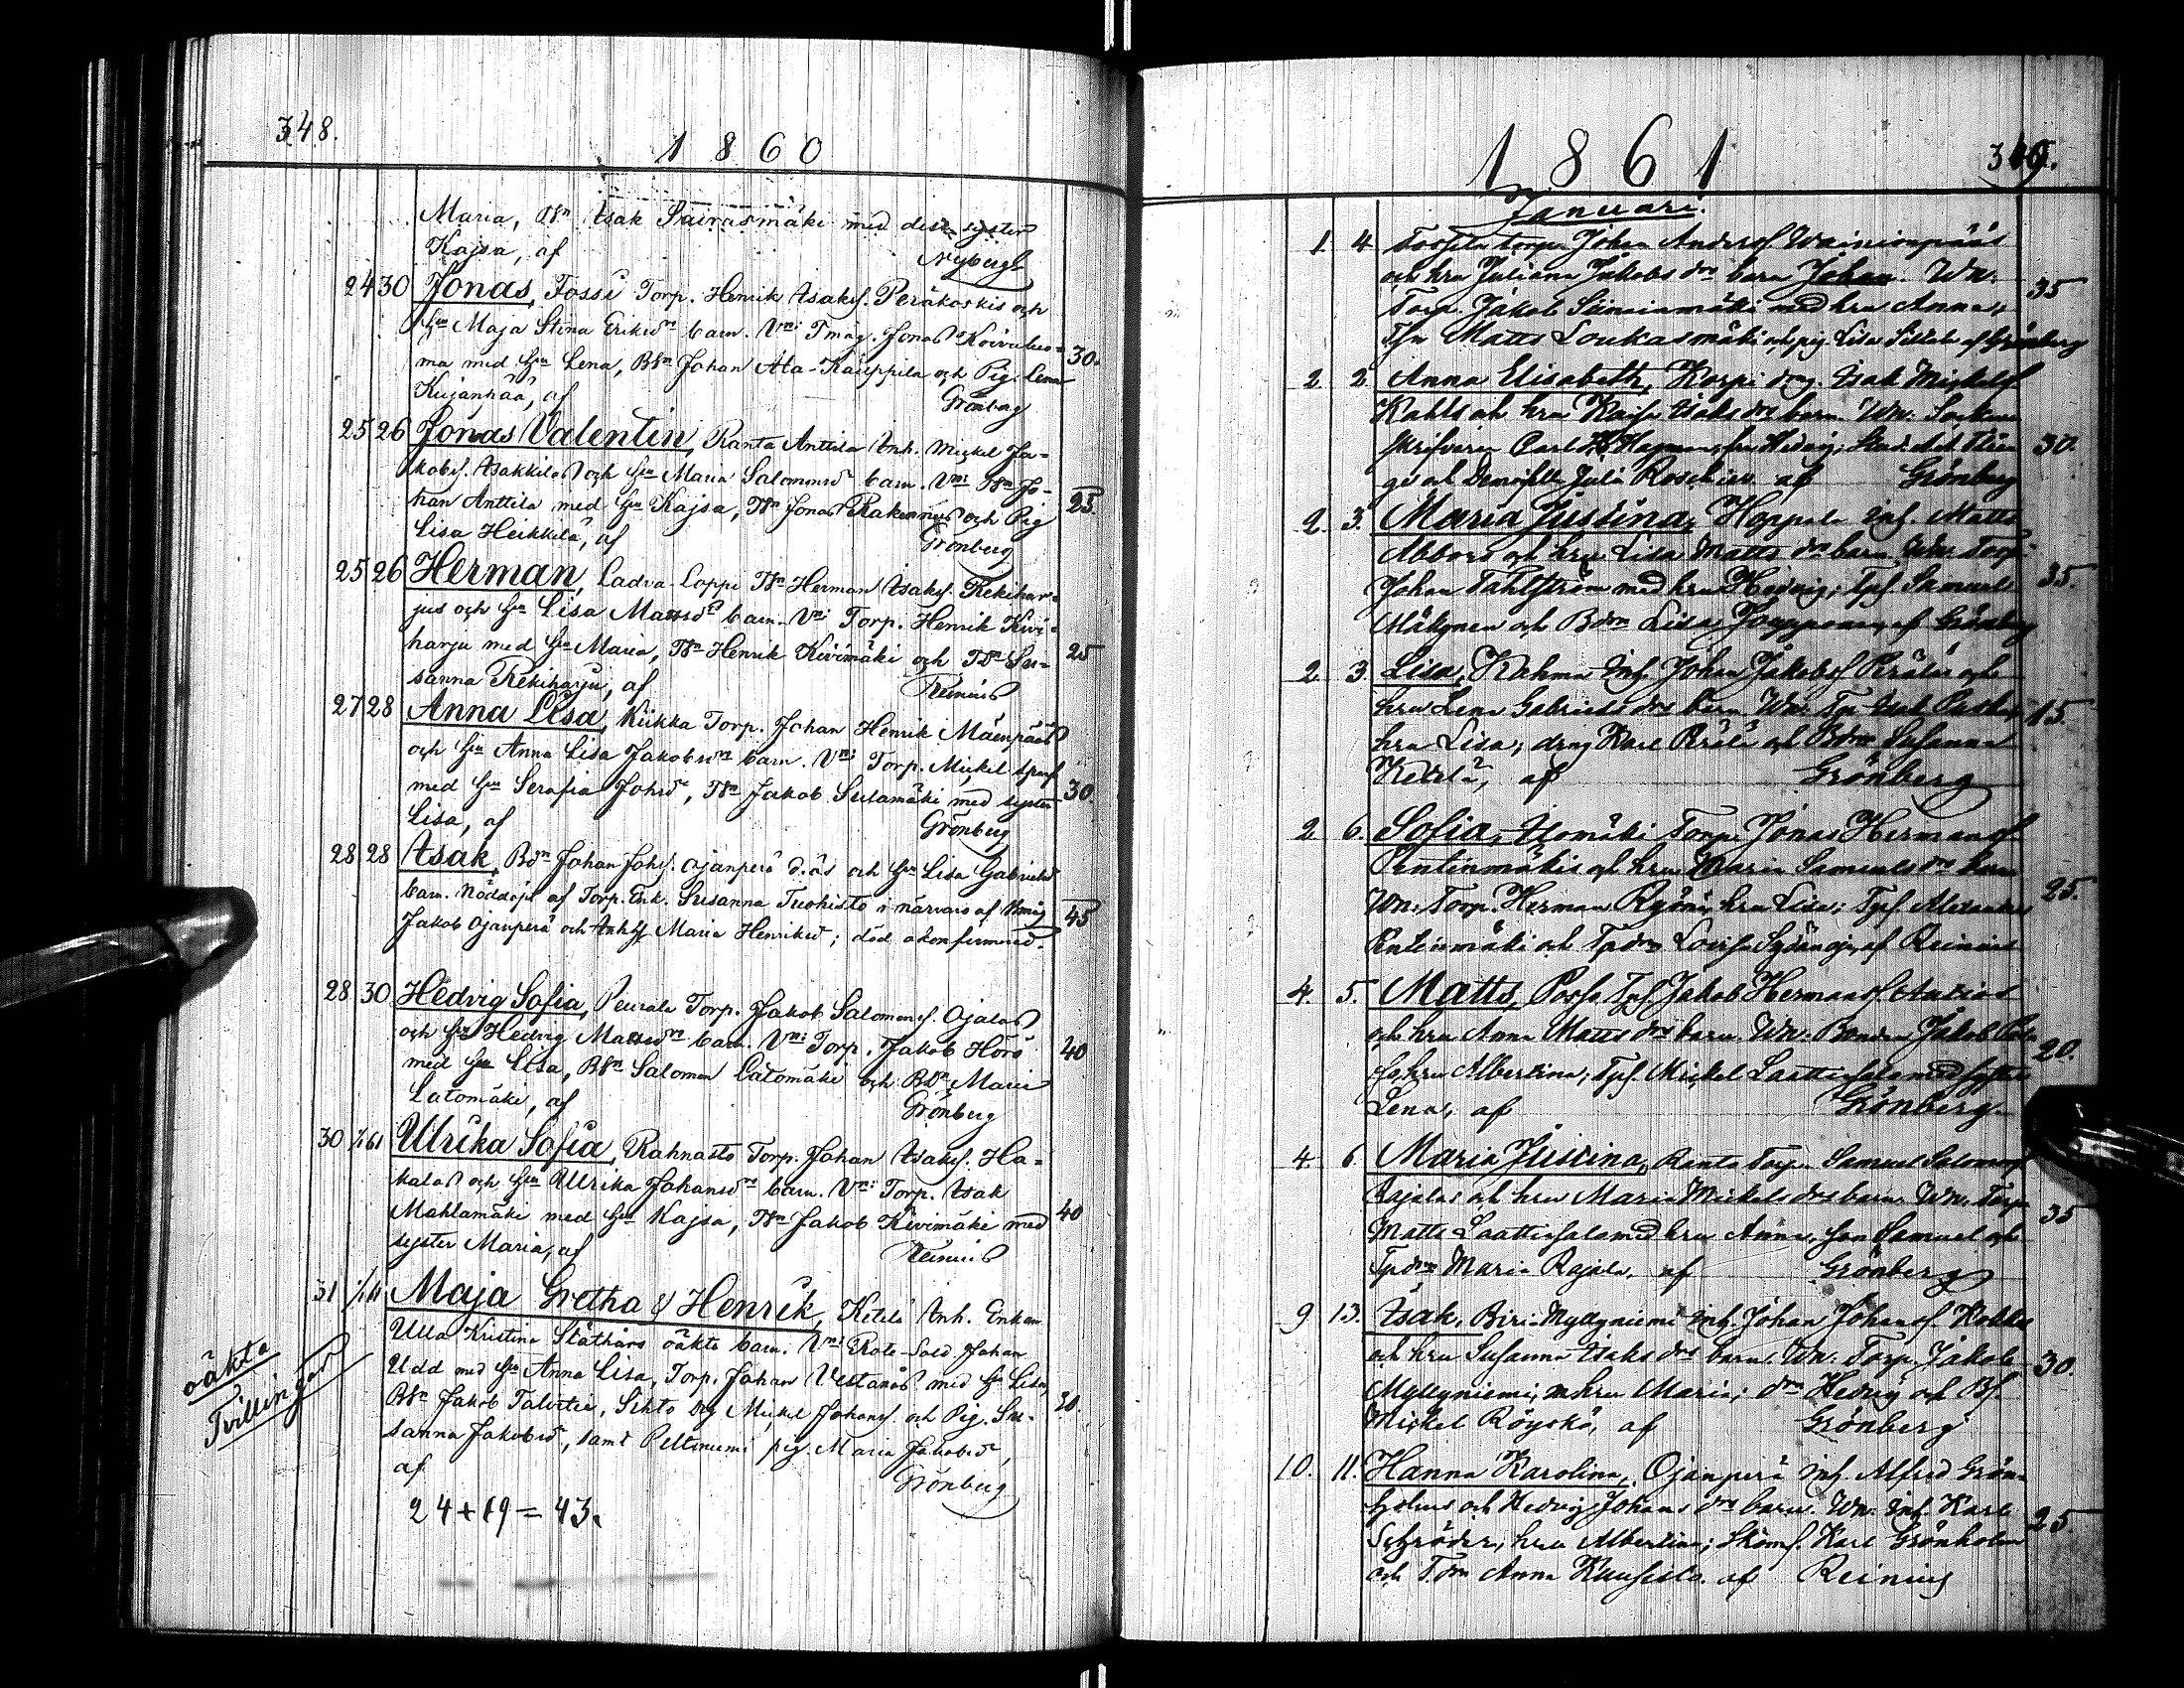 348.
1860
Maria, Bn Isak Sairasmäki med dess syster
Kajsa, af Nyberg
24 30 Jonas, Fossi Torp. Henrik Isaks. Peräkoskis och
hu Maja Stina Eriksdr barn. Vni Tmåg. Jonas Koivuluo=
ma med hu Lena, Bn Johan Ala-Kauppila och Pig. Lena 30.
Kujanpää, af Grönberg
25 26 Jonas Valentin, Ranta Anttila Inh. Mickel Ja=
kobs. Isakkilas och hu Maria Salomonsdr barn. Vni Bn Jo=
han Anttila med hu Kajsa, Bn Jonas Rakennus och Pig 25.
Lisa Heikkilä, af Grönberg
25 26 Herman, Ladva-Loppi Bn Herman Isaks. Rekihar=
jus och hu Lisa Mattsdr barn. Vni Torp. Henrik Kivi=
harju med hu Maria, Bn Henrik Kivimäki och Bdr Su= 25
sanna Rekiharju, af Reinius
27 28 Anna Lisa, Kiikka Torp. Johan Henrik Mäenpääs
och hu Anna Lisa Jakobsdr barn. Vni Torp. Mickel
med hu Serafia Johsdr, Bn Jakob Sulamäki med syster 30.
Lisa, af Grönberg
28 28 Isak, Bdn Johan Johs. Ojanperä d.äs och hu Lisa Gabrielsd
barn. Nöddöpt af Torp. Enk. Susanna Tuohisto i närvaro af
Jakob Ojanperä och Maria Henriksd; död okonfirmerad. 45
28 30 Hedvig Sofia, Peurala Torp. Jakob Salomons. Ojalas
och hu Hedvig Mattsdr barn. Vni Torp. Jakob Hörö 40
med hu Lisa, Bn Salomon Latomäki och Bdr Maria
Latomäki, af Grönberg
30 1/1 61 Ulrika Sofia, Rahnasto Torp. Johan Isaks. Ha=
kalas och hu Ulrika Johansdr barn. Vni Torp. Isak
Mahlamäki med hu Kajsa, Bn Jakob Kivimäki med 40
syster Maria, af Reinius
31 1/1 61 Maja Gretha & Henrik, Ketola Inh. Enkan
oäkta
Tvillingar
Ulla Kristina Ståthårs oäkta barn. Vni Rote-Sold. Johan
Udd med hu Anna Lisa, Torp. Johan Vestanås med hu Lisa,
Bn Jakob Talvitie, Sihto Dg Mickel Johans. och Pig. Su= 30.
sanna Jakobsd, samt Peltoniemi pig. Maria Jakobsd,
af Grönberg
24+19=43.
1861
349.
Januari.
1. 4 Torp. Johan Anders. Wainionpääs
och hru Juliana Jakobs dr barn Johan. Wn: 35
Torp. Jakob med hru Anna,
Matts Loukasmäki och pig. Lisa af Grönberg
2 2 Anna Elisabeth, Korpi dräng. Isak Mickels.
Kahls och hru Kajsa Isaks dr barn. Wn: Socken
skrifvaren Carl Hagman, fru Hedvig; 30.
och Demoiselle Julia Roschier af Grönberg
2. 3. Maria Justina, Hoppala Inh. Matts
Abbors och hru Lisa Matts dr barn. Wn: Torp.
Johan Tahlström med hru Hedvig; Tps. Samuel 35.
Mäkynen och Bdr Lisa af Grönberg
2. 3 Lisa, Kahma Inh. Johan Jakobs. Peräläs och
hru Lena Gabriels dr barn. Wn: Isak 15.
hru Lisa; dräng Karl Perälä och Bdr Susanna
Ketelä, af Grönberg
2 6. Sofia, Ylomäki Torp. Jonas Hermans.
Pentinmäkis och hru Maria Samuels dr barn
Wn: Torp. Herman Ryömä, hru Lisa; Tps. Alexander 25.
Pentinmäki och Tpdr Lovisa Syvänoja, af Reinius
4. 5. Matts, Torp. Jakob Hermans. Antias
och hru Anna Matts dr barn. Wn: Bonden Jakob 20.
hru Albertina; Tps. Mickel Laattiasalo med syster
Lena, af Grönberg
4. 6. Maria Justina, Ranta Torp. Samuel Salomons.
Rajalas och hru Maria Mickels dr barn. Wn: Torp. 35
Matts Laattiasalo med hru Anna, son Samuel och
Tpdr Maria Rajala, af Grönberg
9 13. Isak, Biri-Myllyniemi Inh. Johan Johans.
och hru Susanna Isaks dr barn. Wn: Torp. Jakob 30.
Myllyniemi, m hru Maria; dr Hedvig och Bs.
Mickel Röyskö, af Grönberg
10. 11. Hanna Karolina, Ojanperä Inh. Alfred Grön-
holms och Hedvig Johans dr barn. Wn: Inh. Karl 25
Schröder, hru Albertina; Karl Grönholm
och Tdr Anna Kuusisto af Reinius